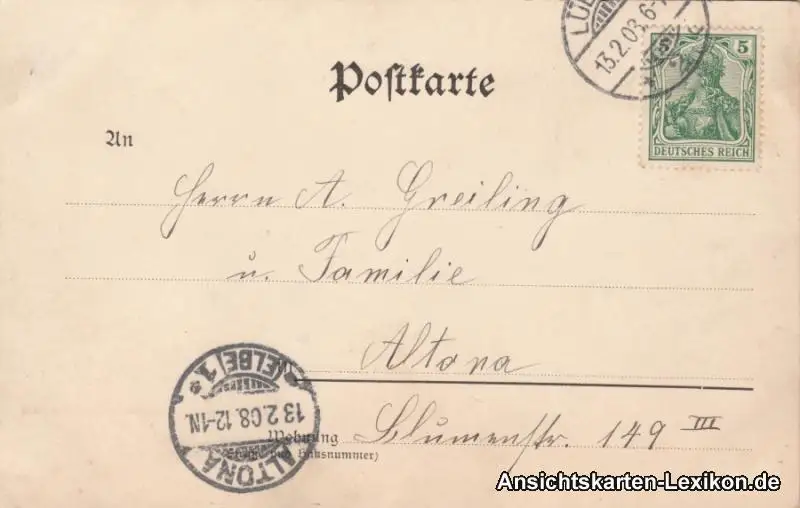 Postkarte
LÜB
13.2.08.6-7
5 5
DEUTSCHES REICH
An
Herrn A. Greiling
u. Familie
Altona
Wohnung Blumenstr. 149 III
(Straße und Hausnummer)
ALTONA
13 2.08. 12-1N.
(ELBE) 1
Ansichtskarten-Lexikon.de